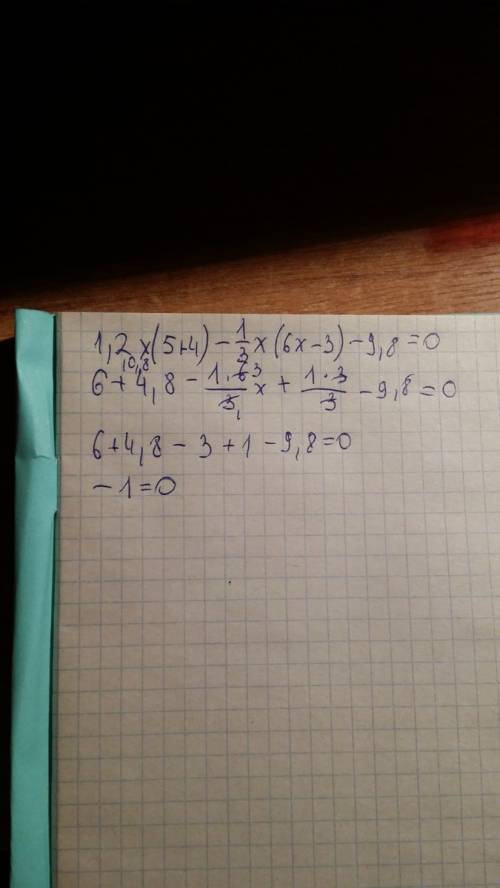 1,2x(5+4) - 1/3 x (6x-3) - 9,8 = 0
10,8
6 + 4,8 - 1·6 3/3 1 x + 1·3/3 - 9,8 = 0
6 + 4,8 - 3 + 1 - 9,8 = 0
- 1 = 0